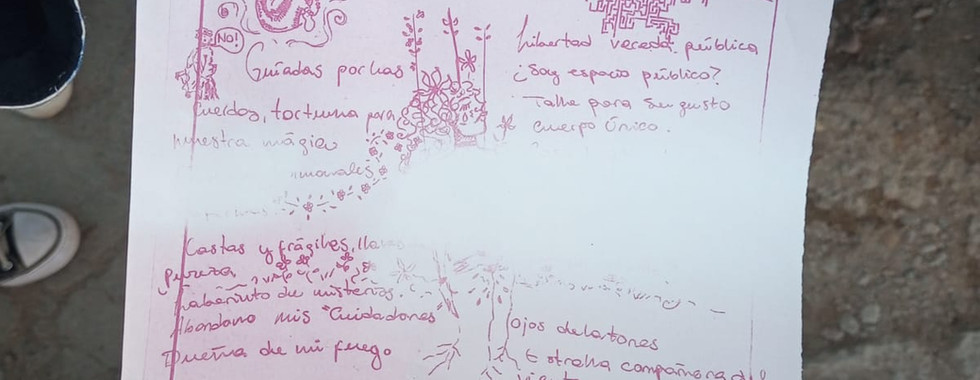 NO!
Guiadas por las
Cuerdos, tortura para
nuestra magia
Castas y frágiles,
pureza
Laberinto de misterios.
Abandono mis "Cuidadores"
Dueña de mi fuego
Libertad vereda pública
¿Soy espacio público?
Talla para su gusto
Cuerpo Único.
Ojos delatores
Estrella compañera